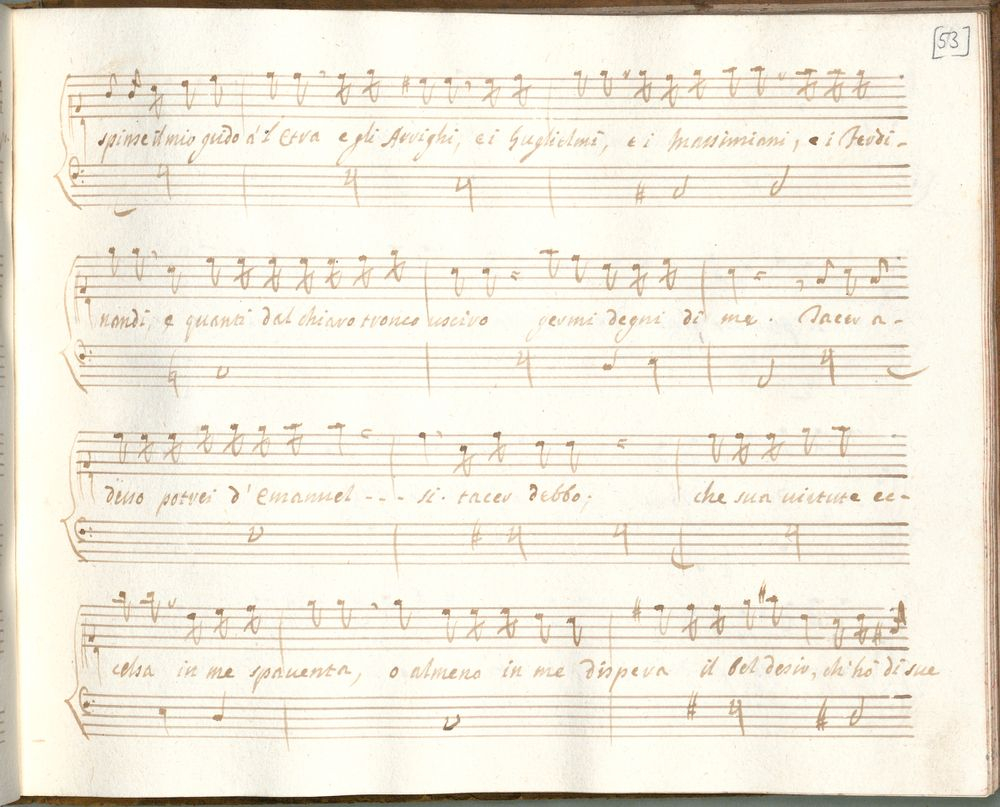 [53]
spinse il mio guido à l'Etra e gli Arrighi, e i Guglielmi, e i Massimiani, e i Ferdi-
nandi, e quanti dal chiaro tronco usciro germi degni di me. Tacer a-
desso potrei d'Emanuel --- si. tacer debbo; che sua uirtute ec-
celsa in me spauenta, o almeno in me dispera il bel desir, ch'hò di sue